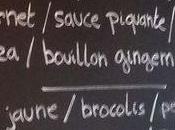 rnet / sauce piquante /
za / bouillon gingem
jaune / brocolis / pe